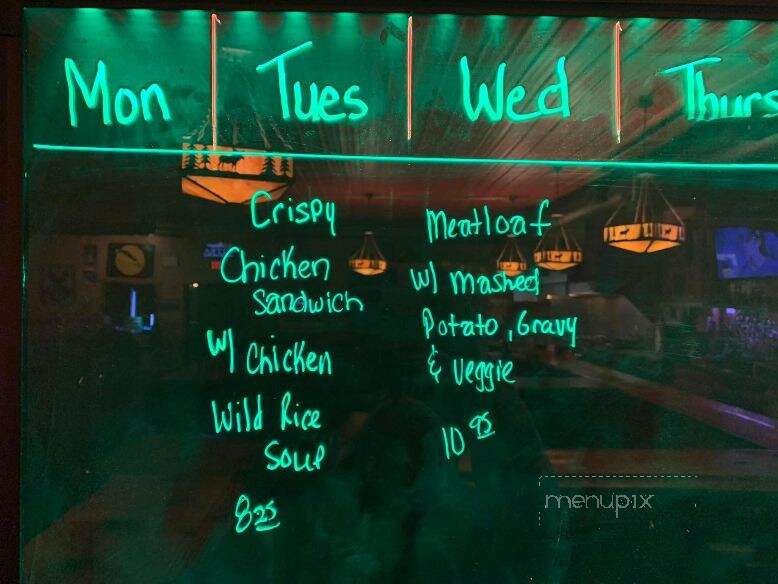 Mon Tues Wed Thurs
Crispy
Chicken
Sandwich
w/ Chicken
Wild Rice
Soup
8 25
Meatloaf
w/ Mashed
Potato, Gravy
& Veggie
10 95
menupix